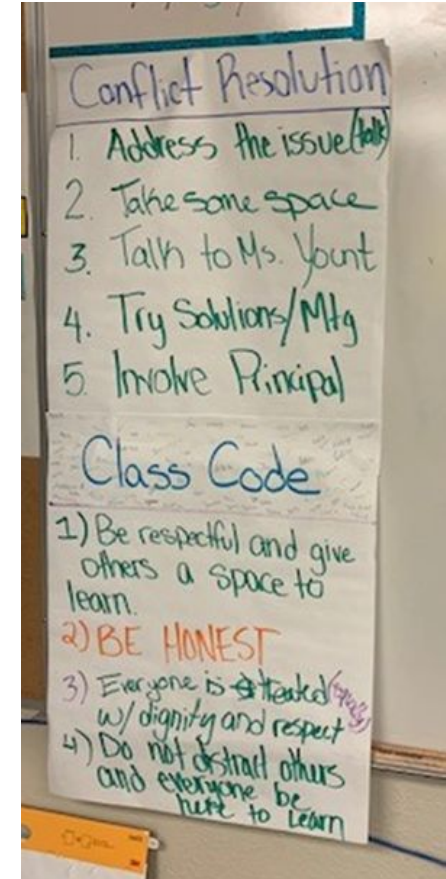 Conflict Resolution
1. Address the issue (talk)
2. Take some space
3. Talk to Ms. Yount
4. Try Solutions/Mtg
5. Involve Principal
Class Code
1) Be respectful and give
others a space to
learn.
2) BE HONEST
3) Everyone is treated (equally)
w/ dignity and respect
4) Do not distract others
and everyone be
here to learn